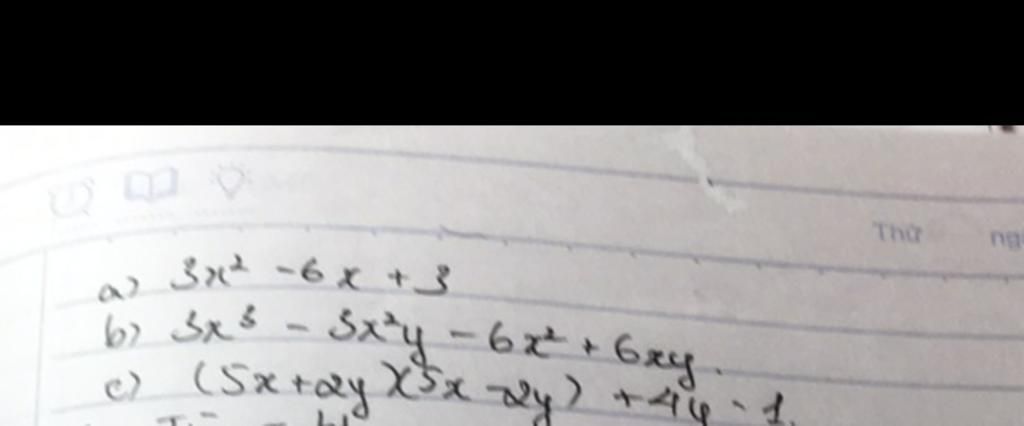 Thứ
a) 3x² - 6x + 3
b) 3x³ - 3x²y - 6x² + 6xy.
c) (5x + 2y)(5x - 2y) + 4y - 1.